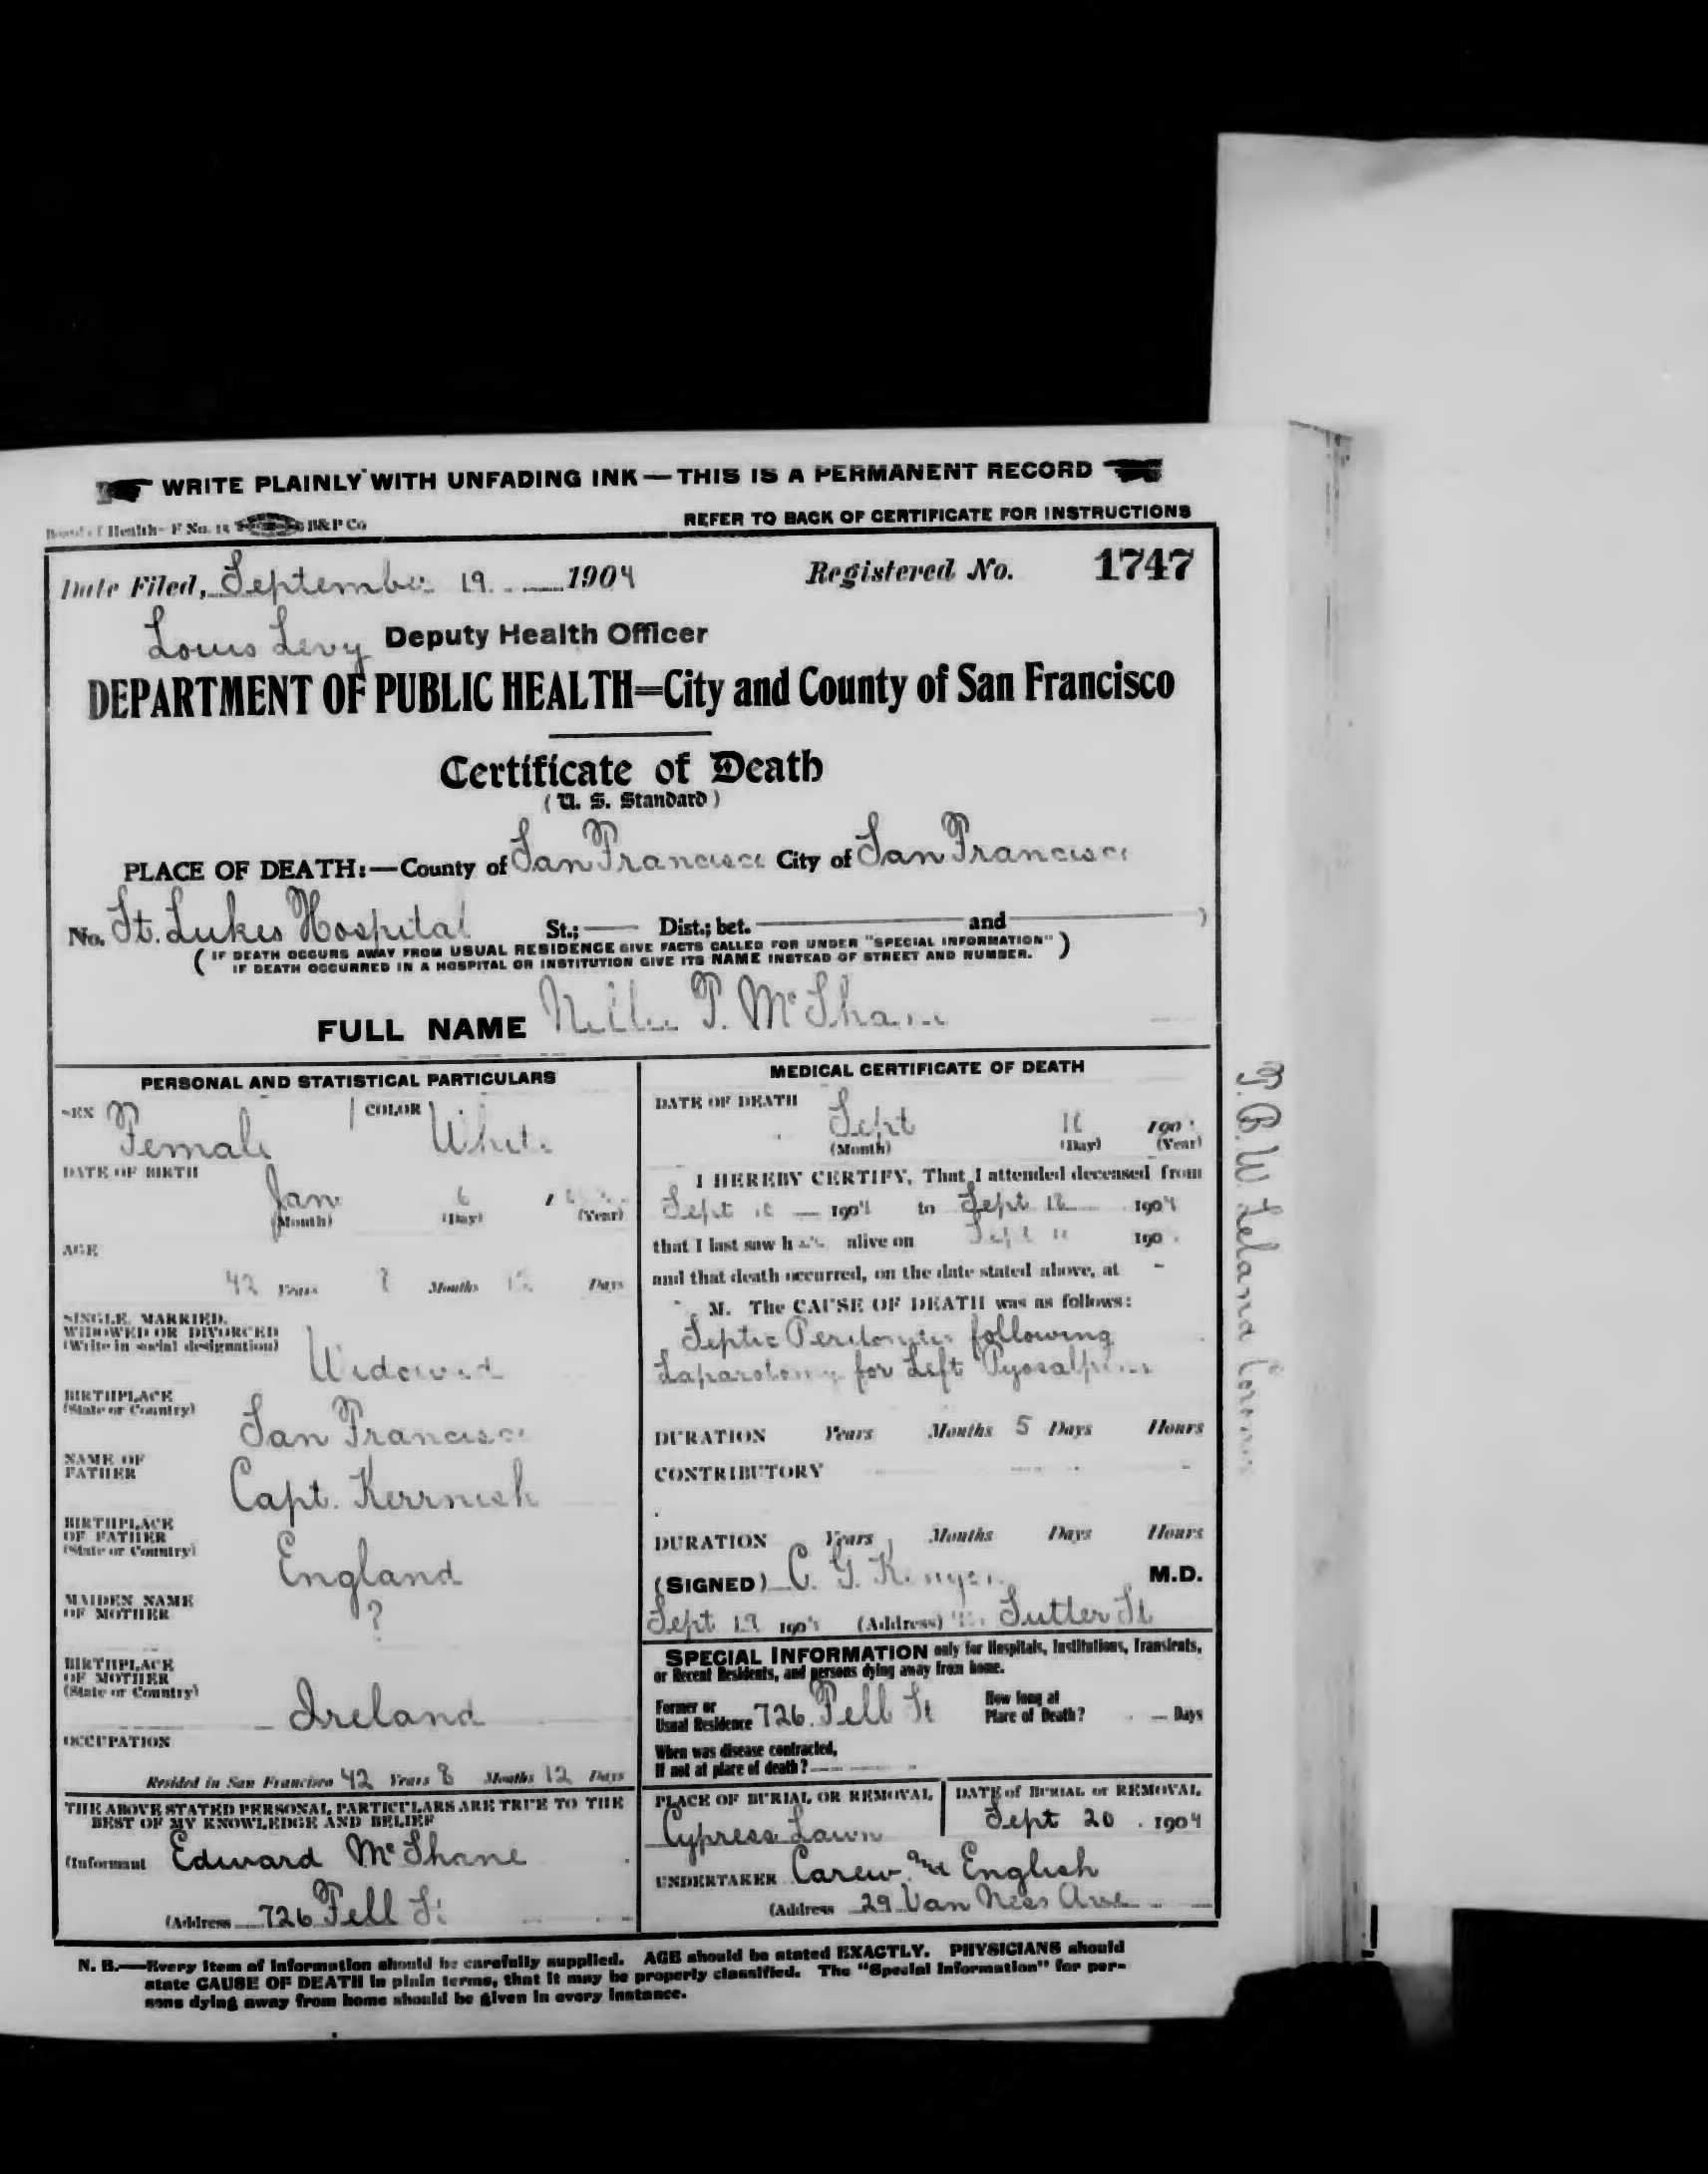 WRITE PLAINLY WITH UNFADING INK — THIS IS A PERMANENT RECORD
Board of Health—F No. 15 B&P Co
REFER TO BACK OF CERTIFICATE FOR INSTRUCTIONS
Date Filed, September 19 1904 Registered No. 1747
Louis Levy Deputy Health Officer
DEPARTMENT OF PUBLIC HEALTH=City and County of San Francisco
Certificate of Death
(U. S. Standard)
PLACE OF DEATH:—County of San Francisco City of San Francisco
No. St. Lukes Hospital St.; Dist.; bet. and )
( IF DEATH OCCURS AWAY FROM USUAL RESIDENCE GIVE FACTS CALLED FOR UNDER "SPECIAL INFORMATION" )
IF DEATH OCCURRED IN A HOSPITAL OR INSTITUTION GIVE ITS NAME INSTEAD OF STREET AND NUMBER.
FULL NAME Nellie P. McShane
PERSONAL AND STATISTICAL PARTICULARS
SEX Female COLOR White
DATE OF BIRTH
Jan 6
(Month) (Day) (Year)
AGE
42 Years 8 Months 12 Days
SINGLE, MARRIED,
WIDOWED OR DIVORCED
(Write in social designation)
Widowed
BIRTHPLACE
(State or Country)
San Francisco
NAME OF
FATHER
Capt. Kerrnish
BIRTHPLACE
OF FATHER
(State or Country)
England
MAIDEN NAME
OF MOTHER
?
BIRTHPLACE
OF MOTHER
(State or Country)
Ireland
OCCUPATION
Resided in San Francisco 42 Years 8 Months 12 Days
THE ABOVE STATED PERSONAL PARTICULARS ARE TRUE TO THE
BEST OF MY KNOWLEDGE AND BELIEF
(Informant Edward McShane
(Address 726 Fell St
MEDICAL CERTIFICATE OF DEATH
DATE OF DEATH
Sept 18 190
(Month) (Day) (Year)
I HEREBY CERTIFY, That I attended deceased from
Sept 1904 to Sept 18 1904
that I last saw h alive on Sept 190
and that death occurred, on the date stated above, at -
M. The CAUSE OF DEATH was as follows:
Septic Peritonitis following
Laparotomy for Left Pyosalpinx
DURATION Years Months 5 Days Hours
CONTRIBUTORY
DURATION Years Months Days Hours
(SIGNED) C. G. Kenyon M.D.
Sept 19 1904 (Address) Sutter St
SPECIAL INFORMATION only for Hospitals, Institutions, Transients,
or Recent Residents, and persons dying away from home.
Former or
Usual Residence 726 Fell St
How long at
Place of Death? Days
When was disease contracted,
If not at place of death?
PLACE OF BURIAL OR REMOVAL
Cypress Lawn
DATE of BURIAL or REMOVAL
Sept 20 1904
UNDERTAKER Carew and English
(Address 29 Van Ness Ave
N. B.—Every item of information should be carefully supplied. AGE should be stated EXACTLY. PHYSICIANS should
state CAUSE OF DEATH in plain terms, that it may be properly classified. The "Special Information" for per-
sons dying away from home should be given in every instance.
T. B. W. Leland Coroner